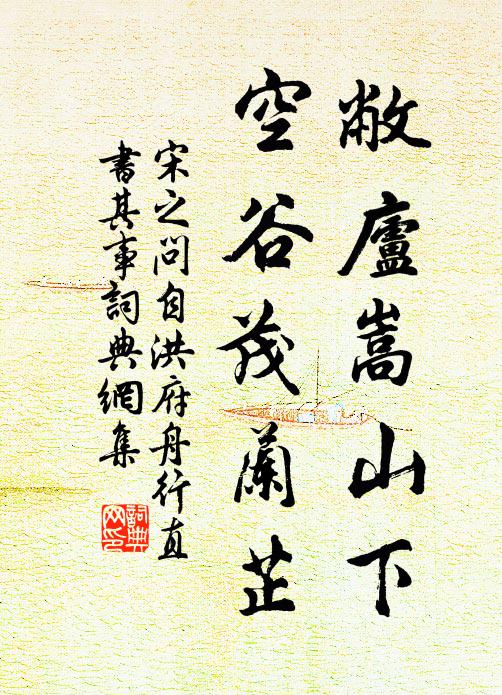 敝廬嵩山下
空谷茂蘭芷
宋之問自洪府舟行直
書其事詞典網集
詞典网印